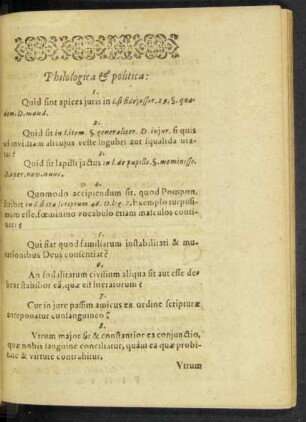 Philologica & politica:
1.
Quid sint apices juris in l. si fidejussor. 29. §. quæ-
dam. D. mand.
2.
Quid sit in l. item. §. generaliter. D. injur. si quis
ad invidiam alicujus veste lugubri aut squalida uta-
tur?
3.
Quid sit lapilli jactus in l. de pupillo. §. meminisse.
D. oper. nov. nunc.
4.
Quomodo accipiendum sit. quod Pompon.
scribit in l. si ita scriptum 45. D. leg. 2. Exemplo turpissi-
mum esse, fœminino vocabulo etiam masculos conti-
neri?
5.
Qui fiat quod familiarum instabilitati & mu-
tationibus Deus consentiat?
6.
An sodalitatum civilium aliqua sit aut esse de-
beat stabilior eâ, quæ est literatorum?
7.
Cur in jure passim amicus ex ordine scripturæ
anteponatur consanguineo?
8.
Vtrum major sit & constantior ea conjunctio,
quæ nobis sanguine conciliatur, quàm ea quæ probi-
tate & virtute contrahitur.
Vtrum